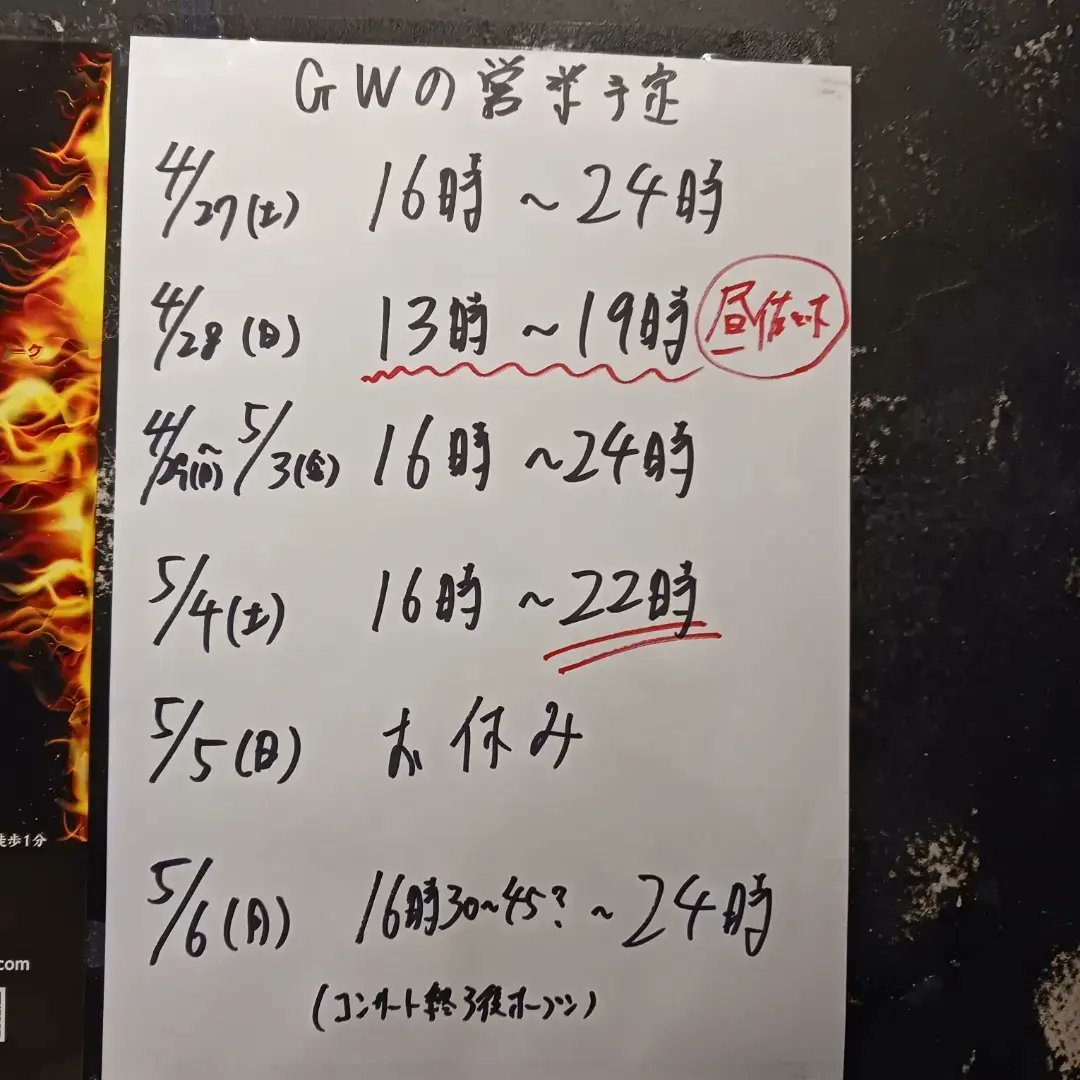 GWの営業予定
4/27(土) 16時～24時
4/28(日) 13時～19時
4/29(月)～5/3(金) 16時～24時
5/4(土) 16時～22時
5/5(日) お休み
5/6(月) 16時30～45?～24時
(コンサート終了後オープン)
ーク
徒歩1分
.com